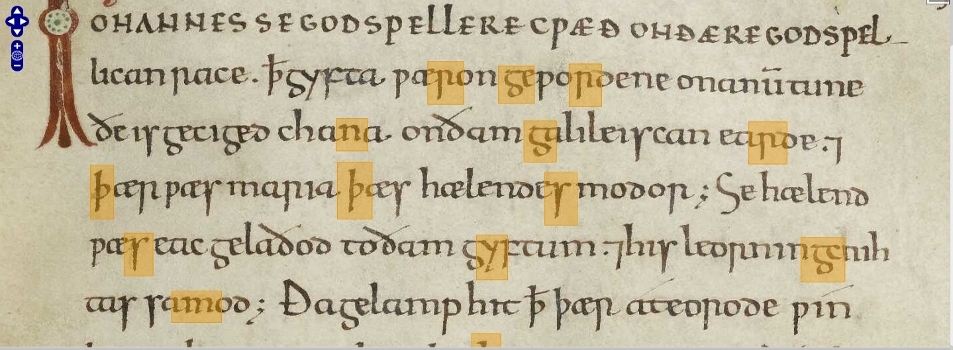 IOHANNES SE GODSPELLERE CǷÆÐ ON ÐÆRE GODSPEL
lican race. ꝥ gyfta ƿæron geƿordene on anū tune
ðe is geciged chana on ðam galileiscan earde. ⁊
þær ƿæs maria þæs hælendes modor; Se hælend
ƿæs eac gelaðod to ðam gyftum. ⁊ his leorningcniht
as samod; Ða gelamp hit ꝥ þær ateorode ƿin